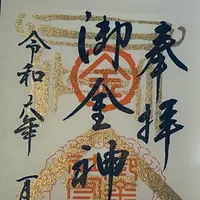 奉拝
御金神
令和六年 一月